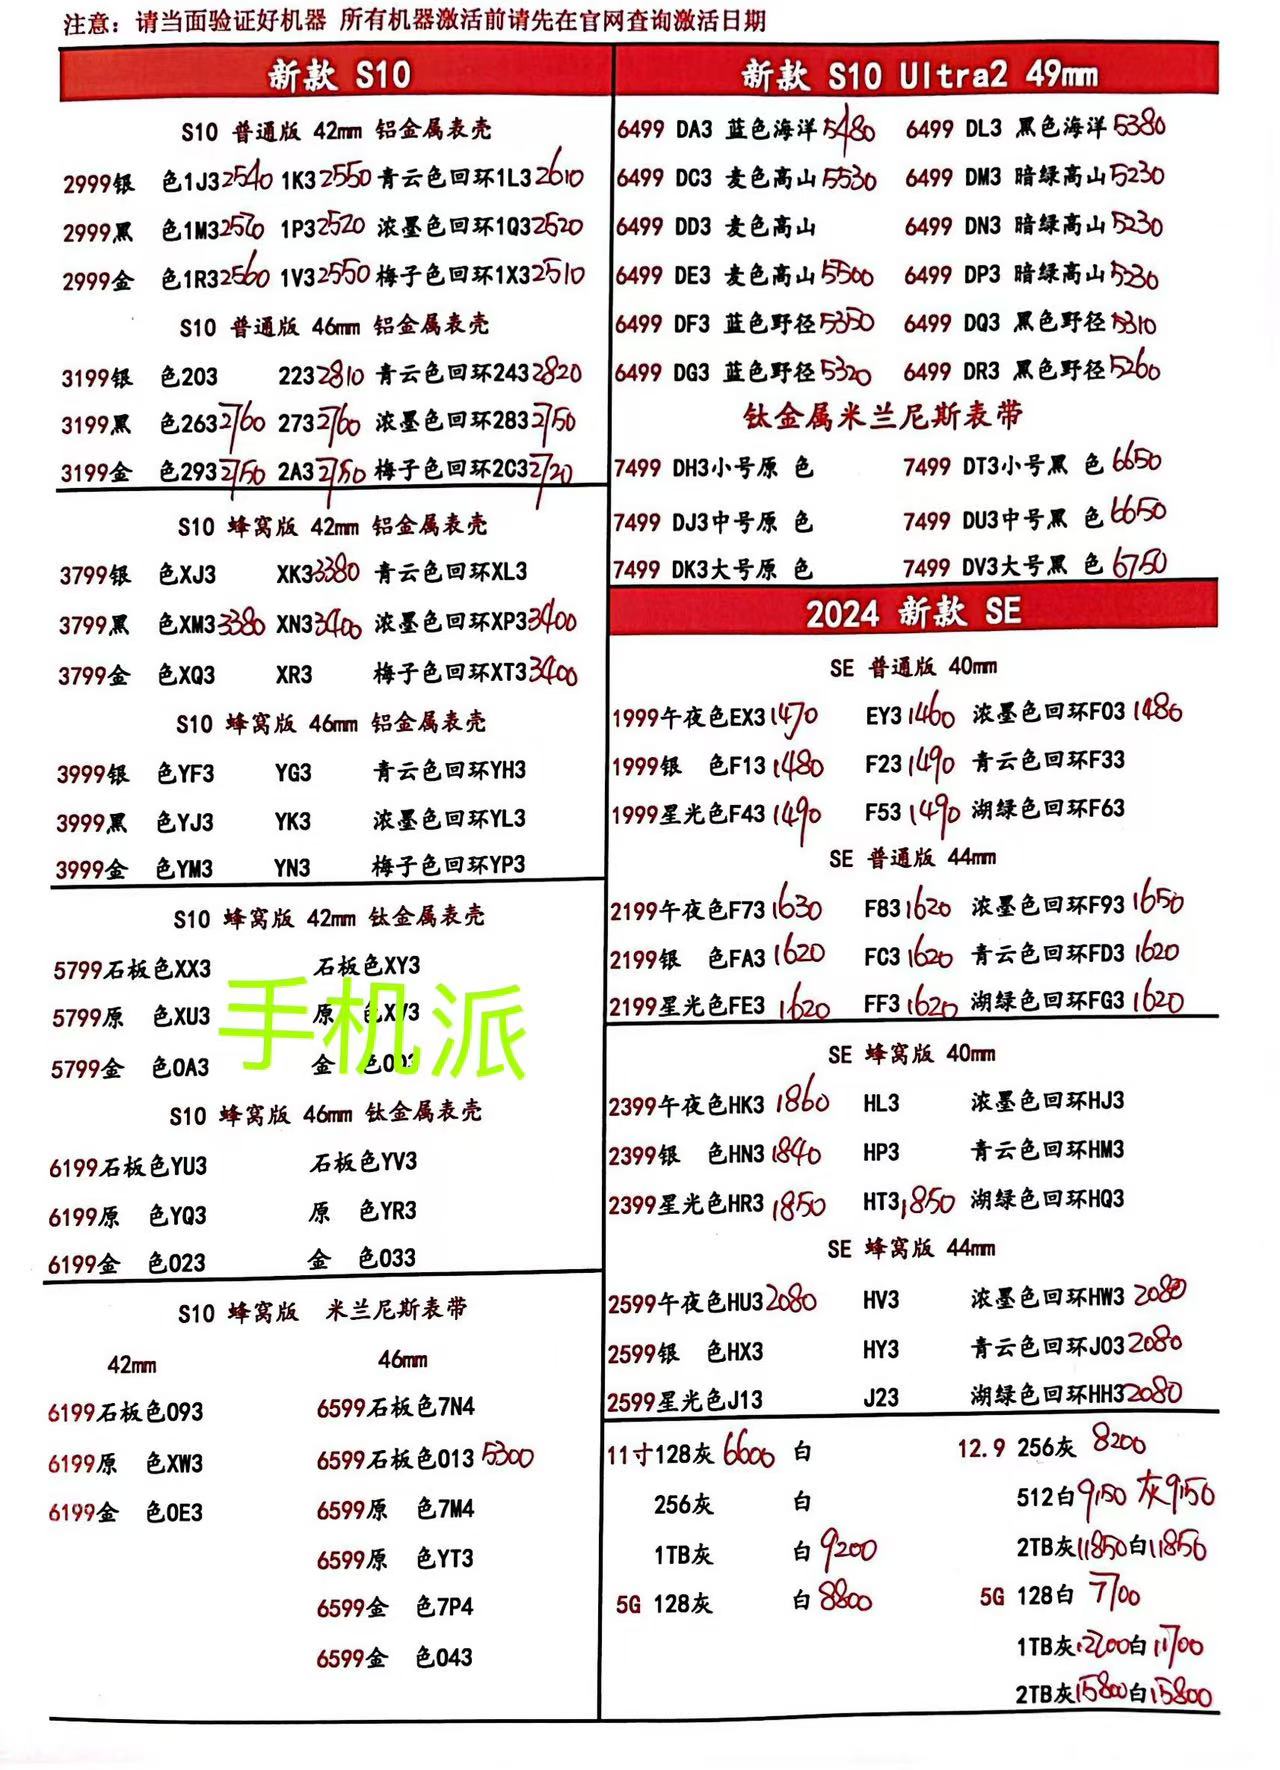 注意：请当面验证好机器 所有机器激活前请先在官网查询激活日期
新款 S10
S10 普通版 42mm 铝金属表壳
2999银 色1J3 2540 1K3 2550 青云色回环1L3 2610
2999黑 色1M3 2570 1P3 2520 浓墨色回环1Q3 2520
2999金 色1R3 2560 1V3 2550 梅子色回环1X3 2510
S10 普通版 46mm 铝金属表壳
3199银 色203 223 2810 青云色回环243 2820
3199黑 色263 2760 273 2760 浓墨色回环283 2750
3199金 色293 2750 2A3 2750 梅子色回环2C3 2720
S10 蜂窝版 42mm 铝金属表壳
3799银 色XJ3 XK3 3380 青云色回环XL3
3799黑 色XM3 3380 XN3 3400 浓墨色回环XP3 3400
3799金 色XQ3 XR3 梅子色回环XT3 3400
S10 蜂窝版 46mm 铝金属表壳
3999银 色YF3 YG3 青云色回环YH3
3999黑 色YJ3 YK3 浓墨色回环YL3
3999金 色YM3 YN3 梅子色回环YP3
S10 蜂窝版 42mm 钛金属表壳
5799石板色XX3 石板色XY3
5799原 色XU3 原 色XV3
5799金 色0A3 金
手机派
S10 蜂窝版 46mm 钛金属表壳
6199石板色YU3 石板色YV3
6199原 色YQ3 原 色YR3
6199金 色023 金 色033
S10 蜂窝版 米兰尼斯表带
42mm 46mm
6199石板色093 6599石板色7N4
6199原 色XW3 6599石板色013 5300
6199金 色0E3 6599原 色7M4
6599原 色YT3
6599金 色7P4
6599金 色043
新款 S10 Ultra2 49mm
6499 DA3 蓝色海洋 5480 6499 DL3 黑色海洋 5380
6499 DC3 麦色高山 5530 6499 DM3 暗绿高山 5230
6499 DD3 麦色高山 6499 DN3 暗绿高山 5230
6499 DE3 麦色高山 5500 6499 DP3 暗绿高山 5230
6499 DF3 蓝色野径 5350 6499 DQ3 黑色野径 5310
6499 DG3 蓝色野径 5320 6499 DR3 黑色野径 5260
钛金属米兰尼斯表带
7499 DH3小号原 色 7499 DT3小号黑 色 6650
7499 DJ3中号原 色 7499 DU3中号黑 色 6650
7499 DK3大号原 色 7499 DV3大号黑 色 6750
2024 新款 SE
SE 普通版 40mm
1999午夜色EX3 1470 EY3 1460 浓墨色回环F03 1480
1999银 色F13 1480 F23 1490 青云色回环F33
1999星光色F43 1490 F53 1490 湖绿色回环F63
SE 普通版 44mm
2199午夜色F73 1630 F83 1620 浓墨色回环F93 1650
2199银 色FA3 1620 FC3 1620 青云色回环FD3 1620
2199星光色FE3 1620 FF3 1620 湖绿色回环FG3 1620
SE 蜂窝版 40mm
2399午夜色HK3 1860 HL3 浓墨色回环HJ3
2399银 色HN3 1840 HP3 青云色回环HM3
2399星光色HR3 1850 HT3 1850 湖绿色回环HQ3
SE 蜂窝版 44mm
2599午夜色HU3 2080 HV3 浓墨色回环HW3 2080
2599银 色HX3 HY3 青云色回环J03 2080
2599星光色J13 J23 湖绿色回环HH3 2080
11寸128灰 6600 白 12.9 256灰 8200
256灰 白 512白 9150 灰 9150
1TB灰 白 9200 2TB灰 11850 白 11850
5G 128灰 白 8800 5G 128白 7700
1TB灰 12700 白 11700
2TB灰 15800 白 15800